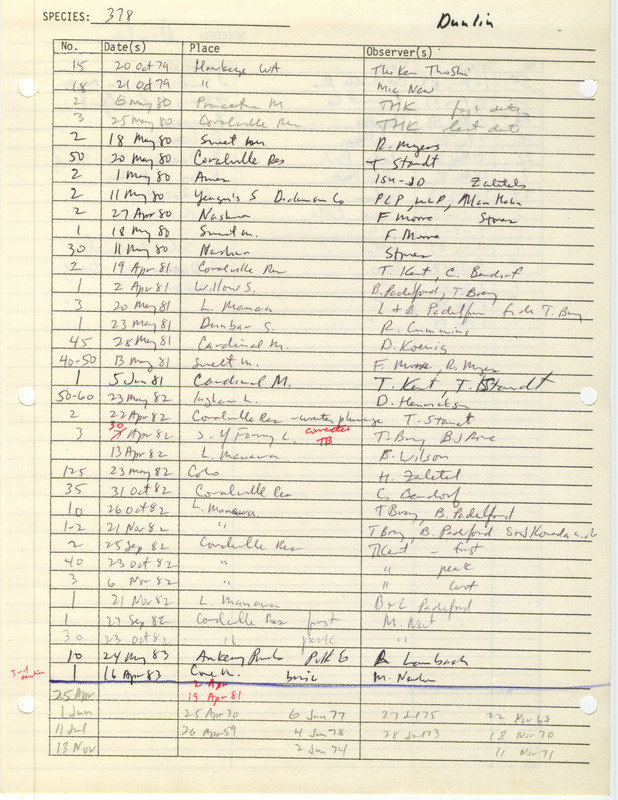 SPECIES: 378 Dunlin
No. Date(s) Place Observer(s)
15 20 Oct 79 Hawkeye WA
18 21 Oct 79 "
2 6 May 80 Princeton M THK first date
3 25 May 80 Coralville Res THK last date
2 18 May 80 Sweet R. Myers
50 20 May 80 Coralville Res T Staudt
2 1 May 80 Ames ISU-JD Zaletels
2 11 May 80 S Dickinson Co PLP, MLP,
2 27 Apr 80 Nashua F Moore Stone
1 18 May 80 Sweet M. F. Moore
30 11 May 80 Nashua Stone
2 19 Apr 81 Coralville Res T. Kent, C. Bendorf
1 2 Apr 81 Willow S. B. Padelford, T. Bray
3 20 May 81 L. Manawa L + B. Padelford fide T. Bray
1 23 May 81 Dunbar S. R. Cummins
45 28 May 81 Cardinal M. D. Koenig
40-50 13 May 81 Sweet M. F. Moore, R. Myers
1 5 Jun 81 Cardinal M. T. Kent, T. Staudt
50-60 23 May 82 Ingham L. D. Henrickson
2 22 Apr 82 Coralville Res - winter plumage T. Staudt
3 30 Apr 82 S. of Forney L. corrected TB T. Bray BJ Rose
13 Apr 82 L. Manawa B. Wilson
125 23 May 82 Colo H. Zaletel
35 31 Oct 82 Coralville Res C. Bendorf
10 26 Oct 82 L. Manawa T Bray B. Padelford
1-2 21 Nov 82 " T Bray, B. Padelford
2 25 Sep 82 Coralville Res T Kent - first
40 23 Oct 82 " " peak
3 6 Nov 82 " " last
1 21 Nov 82 L. Manawa B + L Padelford
1 27 Sep 82 Coralville Res first M. Newlon
30 23 Oct 82 " peak "
10 24 May 83 Ankeny Ponds Polk Co
1 16 Apr 83 Cone M. basic M. Newlon
2 Apr
25 Apr 19 Apr 81
1 Jun 25 Apr 70 6 Jun 77 27 Jl 75 22 Nov 68
11 Jul 26 Apr 59 4 Jun 78 28 Jl 73 18 Nov 70
13 Nov 2 Jun 74 11 Nov 71